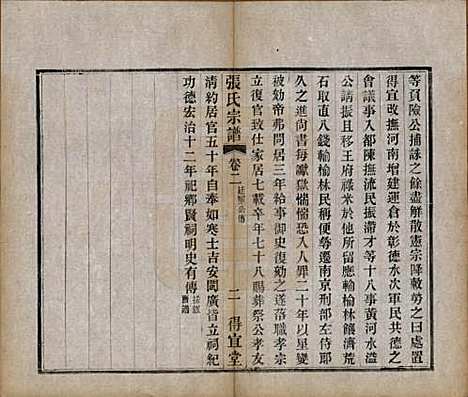 等頁險公捕誅之餘盡解散憲宗降敕勞之曰處置
得宜改撫河南增建運倉於彰德水次軍民共德之
會議事入都陳撫流民振滯才等十八事黃河水溢
公請振且移王府祿米於他所留應輸榆林餉濟荒
石取直八錢輸榆林民稱便㝷遷南京刑部左侍郎
久之進尚書每讞獄惴惴恐入人罪二十年以星變
被劾帝弗問居三年給事御史復劾之遂落職孝宗
立復官致仕家居七載卒年七十八賜葬祭公孝友
張氏宗譜
卷二
二
得宜堂
清約居官五十年自奉如寒士吉安閩廣皆立祠紀
功德宏治十二年祀鄉賢祠明史有傳